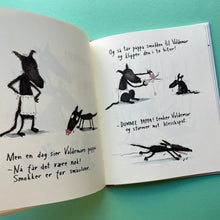 Men en dag sier Valdemars pappa:
- Nå får det være nok!
Smokker er for småulver.
Og så tar pappa smokken til Valdemar
og klipper den i to biter!
- DUMME PAPPA! tenker Valdemar
og stormer mot